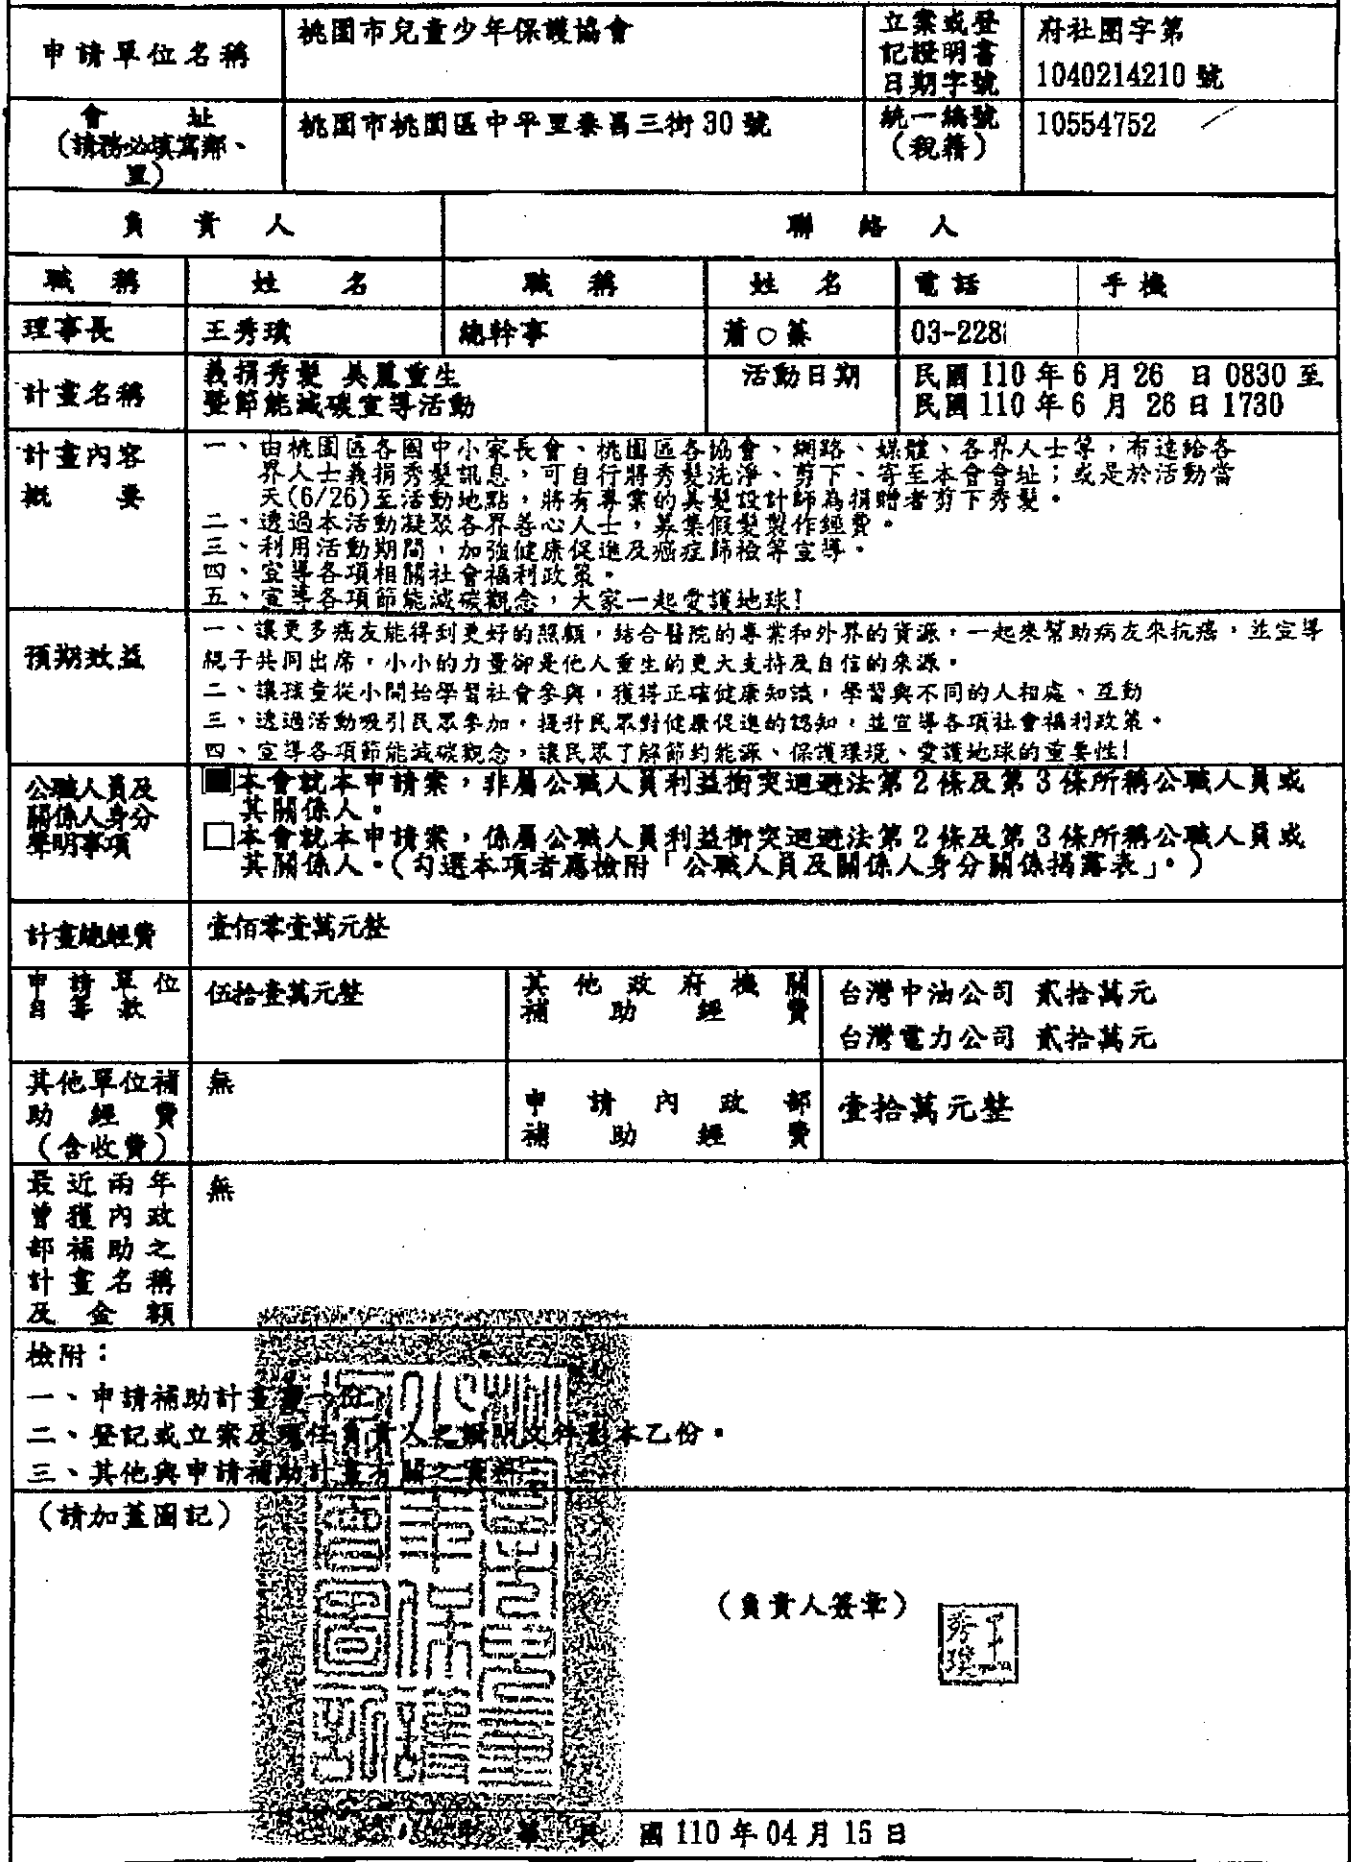 申請單位名稱
桃園市兒童少年保護協會
立案或登
記證明書
日期字號
府社團字第
1040214210 號
會 址
(請務必填寫鄰、
里)
桃園市桃園區中平里泰昌三街30號
統一編號
(稅籍)
10554752
負 責 人
聯 絡 人
職 稱
姓 名
職 稱
姓 名
電 話
手 機
理事長
王秀璞
總幹事
蕭○蓁
03-228
計畫名稱
義捐秀髮 美麗重生
暨節能減碳宣導活動
活動日期
民國 110 年 6 月 26 日 0830 至
民國 110 年 6 月 26 日 1730
計畫內容
概 要
一、由桃園區各國中小家長會、桃園區各協會、網路、媒體、各界人士等,布達給各
界人士義捐秀髮訊息,可自行將秀髮洗淨、剪下、寄至本會會址;或是於活動當
天(6/26)至活動地點,將有專業的美髮設計師為捐贈者剪下秀髮。
二、透過本活動凝聚各界善心人士,募集假髮製作經費。
三、利用活動期間,加強健康促進及癌症篩檢等宣導。
四、宣導各項相關社會福利政策。
五、宣導各項節能減碳觀念,大家一起愛護地球!
預期效益
一、讓更多癌友能得到更好的照顧,結合醫院的專業和外界的資源,一起來幫助病友來抗癌,並宣導
親子共同出席,小小的力量卻是他人重生的更大支持及自信的來源。
二、讓孩童從小開始學習社會參與,獲得正確健康知識,學習與不同的人相處、互動
三、透過活動吸引民眾參加,提升民眾對健康促進的認知,並宣導各項社會福利政策。
四、宣導各項節能減碳觀念,讓民眾了解節約能源、保護環境、愛護地球的重要性!
公職人員及
關係人身分
聲明事項
■本會就本申請案,非屬公職人員利益衝突迴避法第2條及第3條所稱公職人員或
其關係人。
□本會就本申請案,係屬公職人員利益衝突迴避法第2條及第3條所稱公職人員或
其關係人。(勾選本項者應檢附「公職人員及關係人身分關係揭露表」。)
計畫總經費
壹佰零壹萬元整
申請單位
自籌款
伍拾壹萬元整
其他政府機關
補助經費
台灣中油公司 貳拾萬元
台灣電力公司 貳拾萬元
其他單位補
助經費
(含收費)
無
申請內政部
補助經費
壹拾萬元整
最近兩年
曾獲內政
部補助之
計畫名稱
及金額
無
檢附:
一、申請補助計畫書一份。
二、登記或立案及現任負責人之證明文件影本乙份。
三、其他與申請補助計畫有關之資料。
(請加蓋圖記)
(負責人簽章)
王秀璞
中 華 民 國 110 年 04 月 15 日